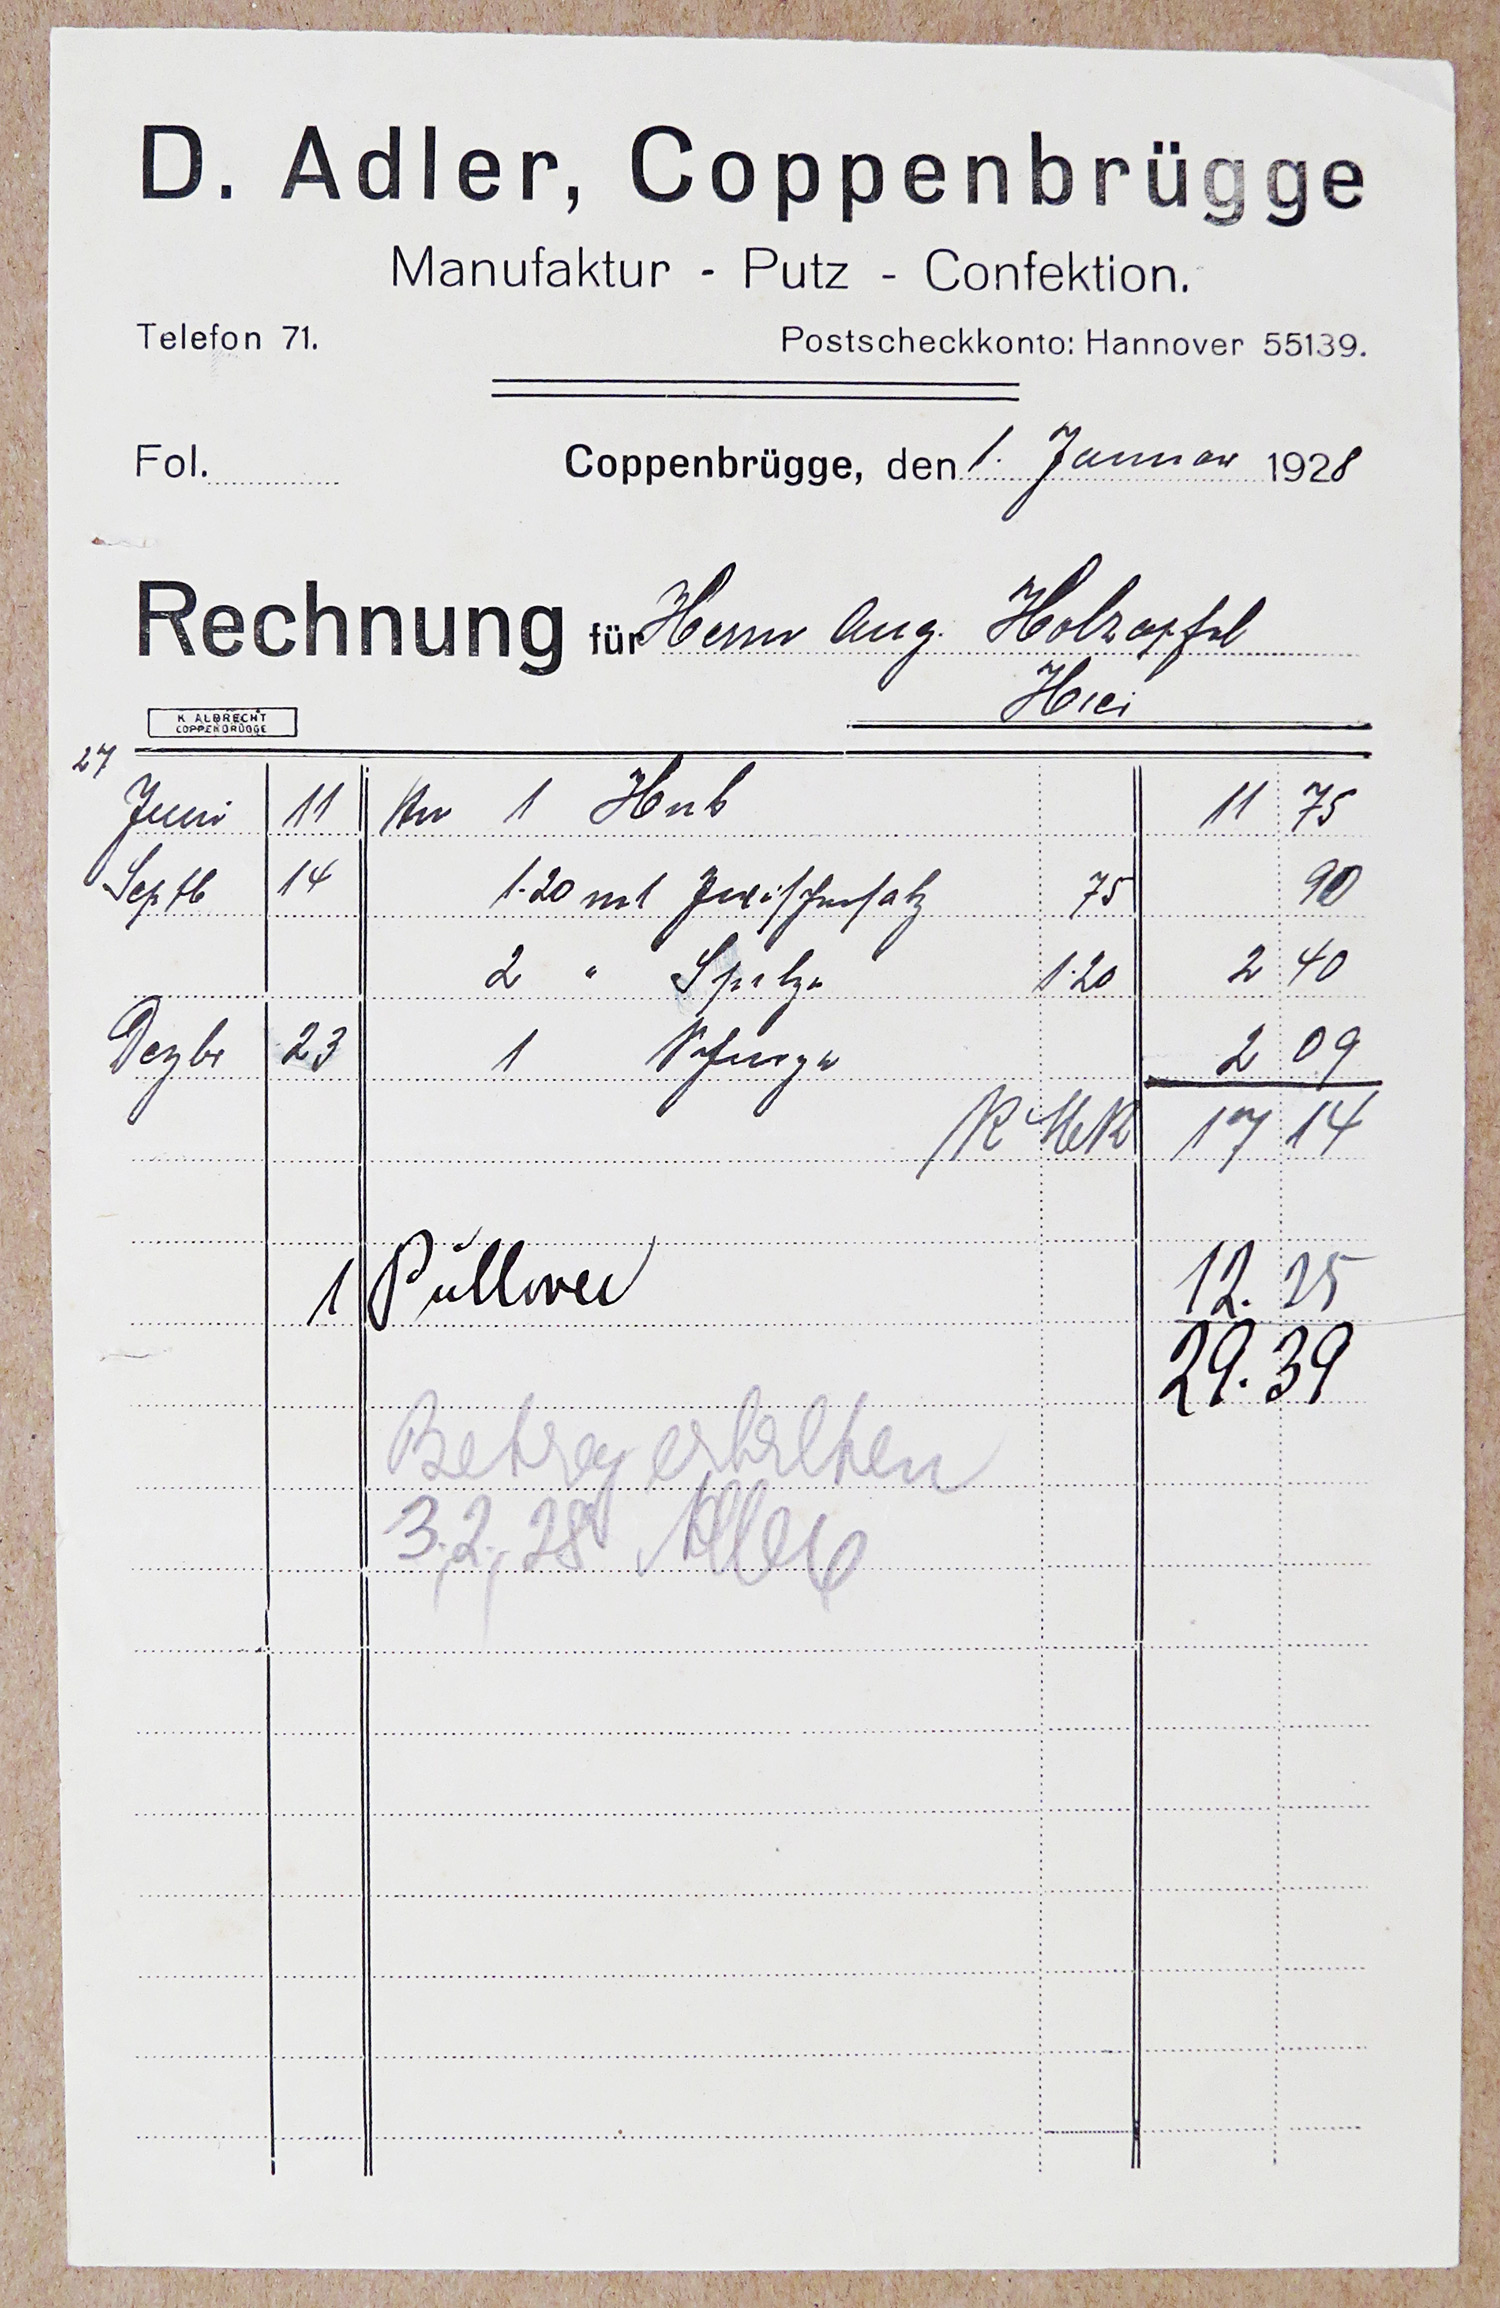 D. Adler, Coppenbrügge
Manufaktur - Putz - Confektion.
Telefon 71. Postscheckkonto: Hannover 55139.
Fol. Coppenbrügge, den 1. Januar 1928
Rechnung für Herrn Aug. Holzapfel
Hier
K. ALBRECHT
COPPENBRÜGGE
27
Juni 11 An 1 Hut 11 75
Septb 14 1.20 mt Zwischensatz 75 90
2 " Spitze 1.20 2 40
Dezbr 23 1 Schürze 2 09
17 14
1 Pullover 12.25
29.39
Betrag erhalten
3.2.28 Adler